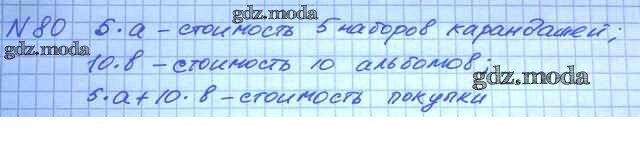 N 80 5·a – стоимость 5 наборов карандашей;
10·в – стоимость 10 альбомов;
5·a + 10·в – стоимость покупки
gdz.moda
gdz.moda
gdz.moda
gdz.moda